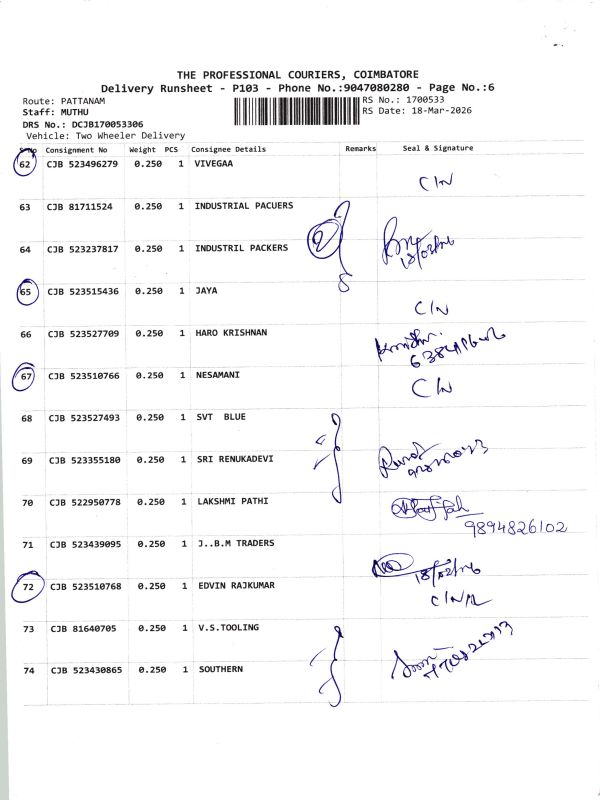 THE PROFESSIONAL COURIERS, COIMBATORE
Delivery Runsheet - P103 - Phone No.:9047080280 - Page No.:6
Route: PATTANAM
RS No.: 1700533
Staff: MUTHU
RS Date: 18-Mar-2026
DRS No.: DCJB170053306
Vehicle: Two Wheeler Delivery
S.No Consignment No Weight PCS Consignee Details Remarks Seal & Signature
62 CJB 523496279 0.250 1 VIVEGAA
C/N
63 CJB 81711524 0.250 1 INDUSTRIAL PACUERS
2
64 CJB 523237817 0.250 1 INDUSTRIL PACKERS
65 CJB 523515436 0.250 1 JAYA
C/N
66 CJB 523527709 0.250 1 HARO KRISHNAN
67 CJB 523510766 0.250 1 NESAMANI
C/N
68 CJB 523527493 0.250 1 SVT BLUE
69 CJB 523355180 0.250 1 SRI RENUKADEVI
70 CJB 522950778 0.250 1 LAKSHMI PATHI
9894826102
71 CJB 523439095 0.250 1 J..B.M TRADERS
72 CJB 523510768 0.250 1 EDVIN RAJKUMAR
73 CJB 81640705 0.250 1 V.S.TOOLING
74 CJB 523430865 0.250 1 SOUTHERN